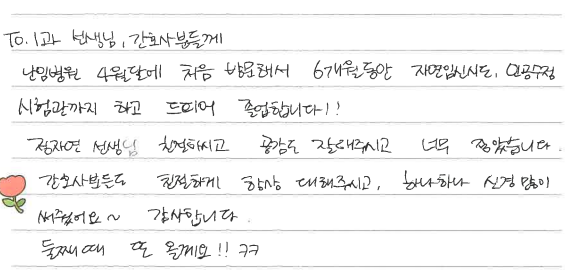 To. 1과 선생님, 간호사분들께
난임병원 4월달에 처음 방문해서 6개월동안 자연임신시도, 인공수정
시험관까지 하고 드디어 졸업합니다!!
정자연 선생님 친절하시고 공감도 잘해주시고 너무 좋았습니다.
간호사분들도 친절하게 항상 대해주시고, 하나하나 신경 많이
써줬어요~ 감사합니다.
둘째때 또 올게요!! ㅋㅋ